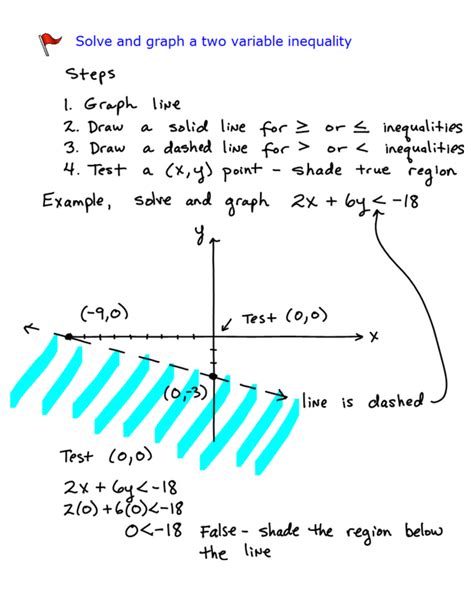 Solve and graph a two variable inequality
Steps
1. Graph line
2. Draw a solid line for ≥ or ≤ inequalities
3. Draw a dashed line for > or < inequalities
4. Test a (x,y) point - shade true region
Example, solve and graph 2x + 6y < -18
y
(-9,0)
Test (0,0)
x
(0,-3)
line is dashed
Test (0,0)
2x + 6y < -18
2(0) + 6(0) < -18
0 < -18 False - shade the region below
the line